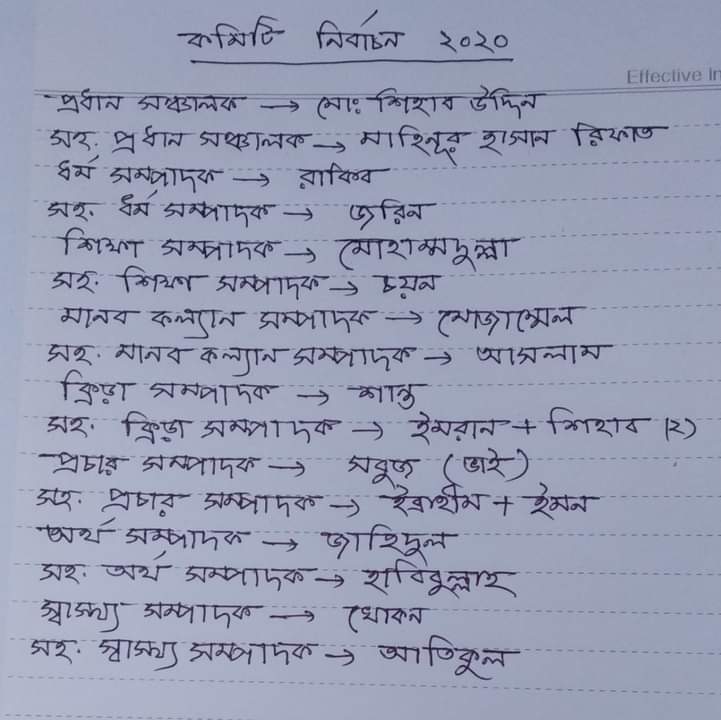 কমিটি নির্বাচন ২০২০
Effective In
প্রধান সঞ্চালক → মোঃ শিহাব উদ্দিন
সহ. প্রধান সঞ্চালক → মাহিনূর হাসান রিফাত
ধর্ম সম্পাদক → রাকিব
সহ. ধর্ম সম্পাদক → জরিন
শিক্ষা সম্পাদক → মোহাম্মদুল্লা
সহ. শিক্ষা সম্পাদক → চয়ন
মানব কল্যান সম্পাদক → মোজাম্মেল
সহ. মানব কল্যান সম্পাদক → আসলাম
ক্রিড়া সম্পাদক → শান্ত
সহ. ক্রিড়া সম্পাদক → ইমরান + শিহাব (২)
প্রচার সম্পাদক → সবুজ (ভাই)
সহ. প্রচার সম্পাদক → ইব্রাহীম + ইমন
অর্থ সম্পাদক → জাহিদুল
সহ. অর্থ সম্পাদক → হাবিবুল্লাহ
স্বাস্থ্য সম্পাদক → খোকন
সহ. স্বাস্থ্য সম্পাদক → আতিকুল